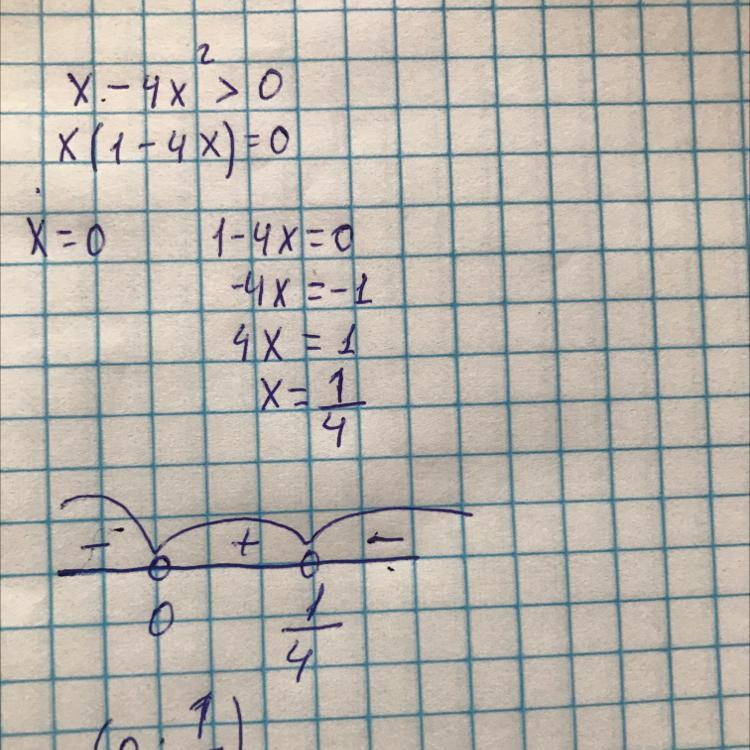 x - 4x² > 0
x(1 - 4x) = 0
x = 0    1 - 4x = 0
-4x = -1
4x = 1
x = 1/4
- + -
0    1/4
(0; 1